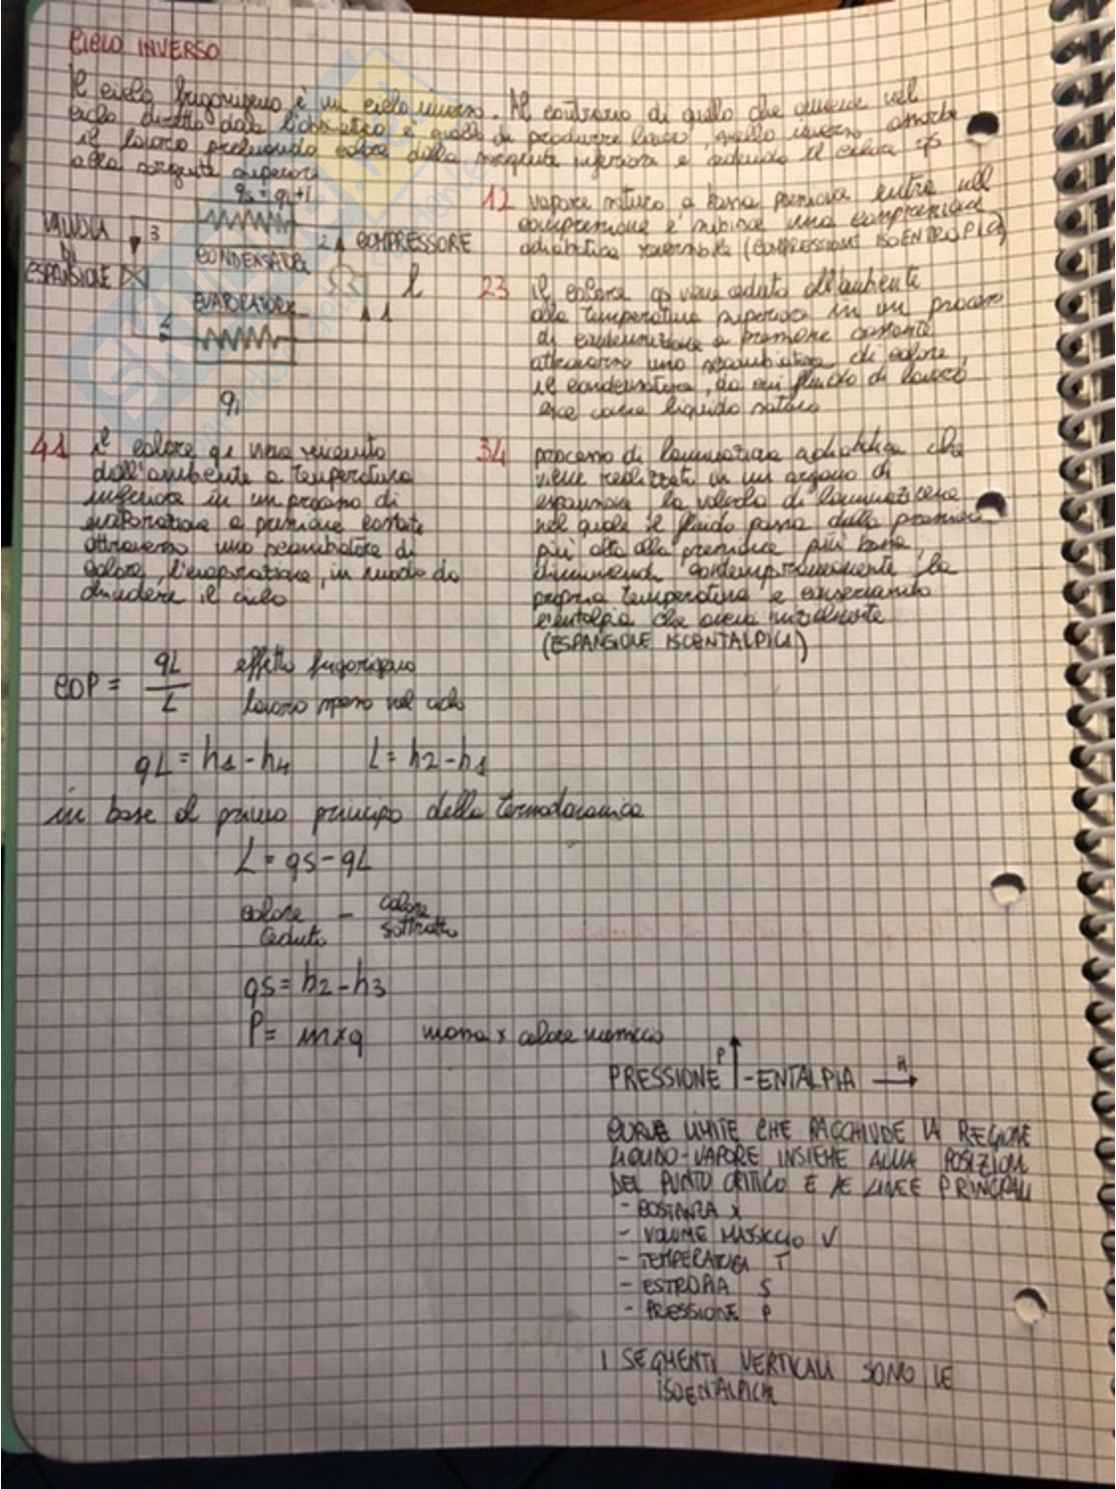 CICLO INVERSO
Il ciclo frigorigeno è un ciclo inverso. Al contrario di quello che avviene nel
ciclo diretto dove l'obbiettivo è quello di produrre lavoro, quello inverso, assorbe
il lavoro prelevando calore dalla sorgente inferiore e cedendo il calore qs
alla sorgente superiore
qs = qi + l
VALVOLA
DI
ESPANSIONE
3
CONDENSATORE
2
COMPRESSORE
l
EVAPORATORE
4
1
qi
12 vapore saturo a bassa pressione entra nel
compressore e subisce una compressione
adiabatica reversibile (COMPRESSIONE ISOENTROPICA)
23 il calore qs viene ceduto all'ambiente
alla temperatura superiore in un processo
di condensazione a pressione costante
attraverso uno scambiatore di calore,
il condensatore, da cui fluido di lavoro
esce come liquido saturo
41 il calore qi viene ricevuto
dall'ambiente a temperatura
inferiore in un processo di
evaporazione a pressione costante
attraverso uno scambiatore di
calore, l'evaporatore, in modo da
chiudere il ciclo
34 processo di laminazione adiabatica che
viene realizzato in un organo di
espansione la valvola di laminazione
nel quale il fluido passa dalla pressione
più alta alla pressione più bassa,
diminuendo contemporaneamente la
propria temperatura e conservando
l'entalpia che aveva inizialmente
(ESPANSIONE ISOENTALPICA)
COP = qL / L
effetto frigorigeno
lavoro speso nel ciclo
qL = h1 - h4
L = h2 - h1
in base al primo principo della termodinamica
L = qs - qL
calore ceduto - calore sottratto
qs = h2 - h3
P = m x q massa x calore massico
PRESSIONE P - ENTALPIA H
CURVE LIMITE CHE RACCHIUDE LA REGIONE
LIQUIDO-VAPORE INSIEME ALLA POSIZIONE
DEL PUNTO CRITICO E LE LINEE PRINCIPALI
- COSTANZA X
- VOLUME MASSICCIO V
- TEMPERATURA T
- ESTROPIA S
- PRESSIONE P
I SEGMENTI VERTICALI SONO LE
ISOENTALPICHE